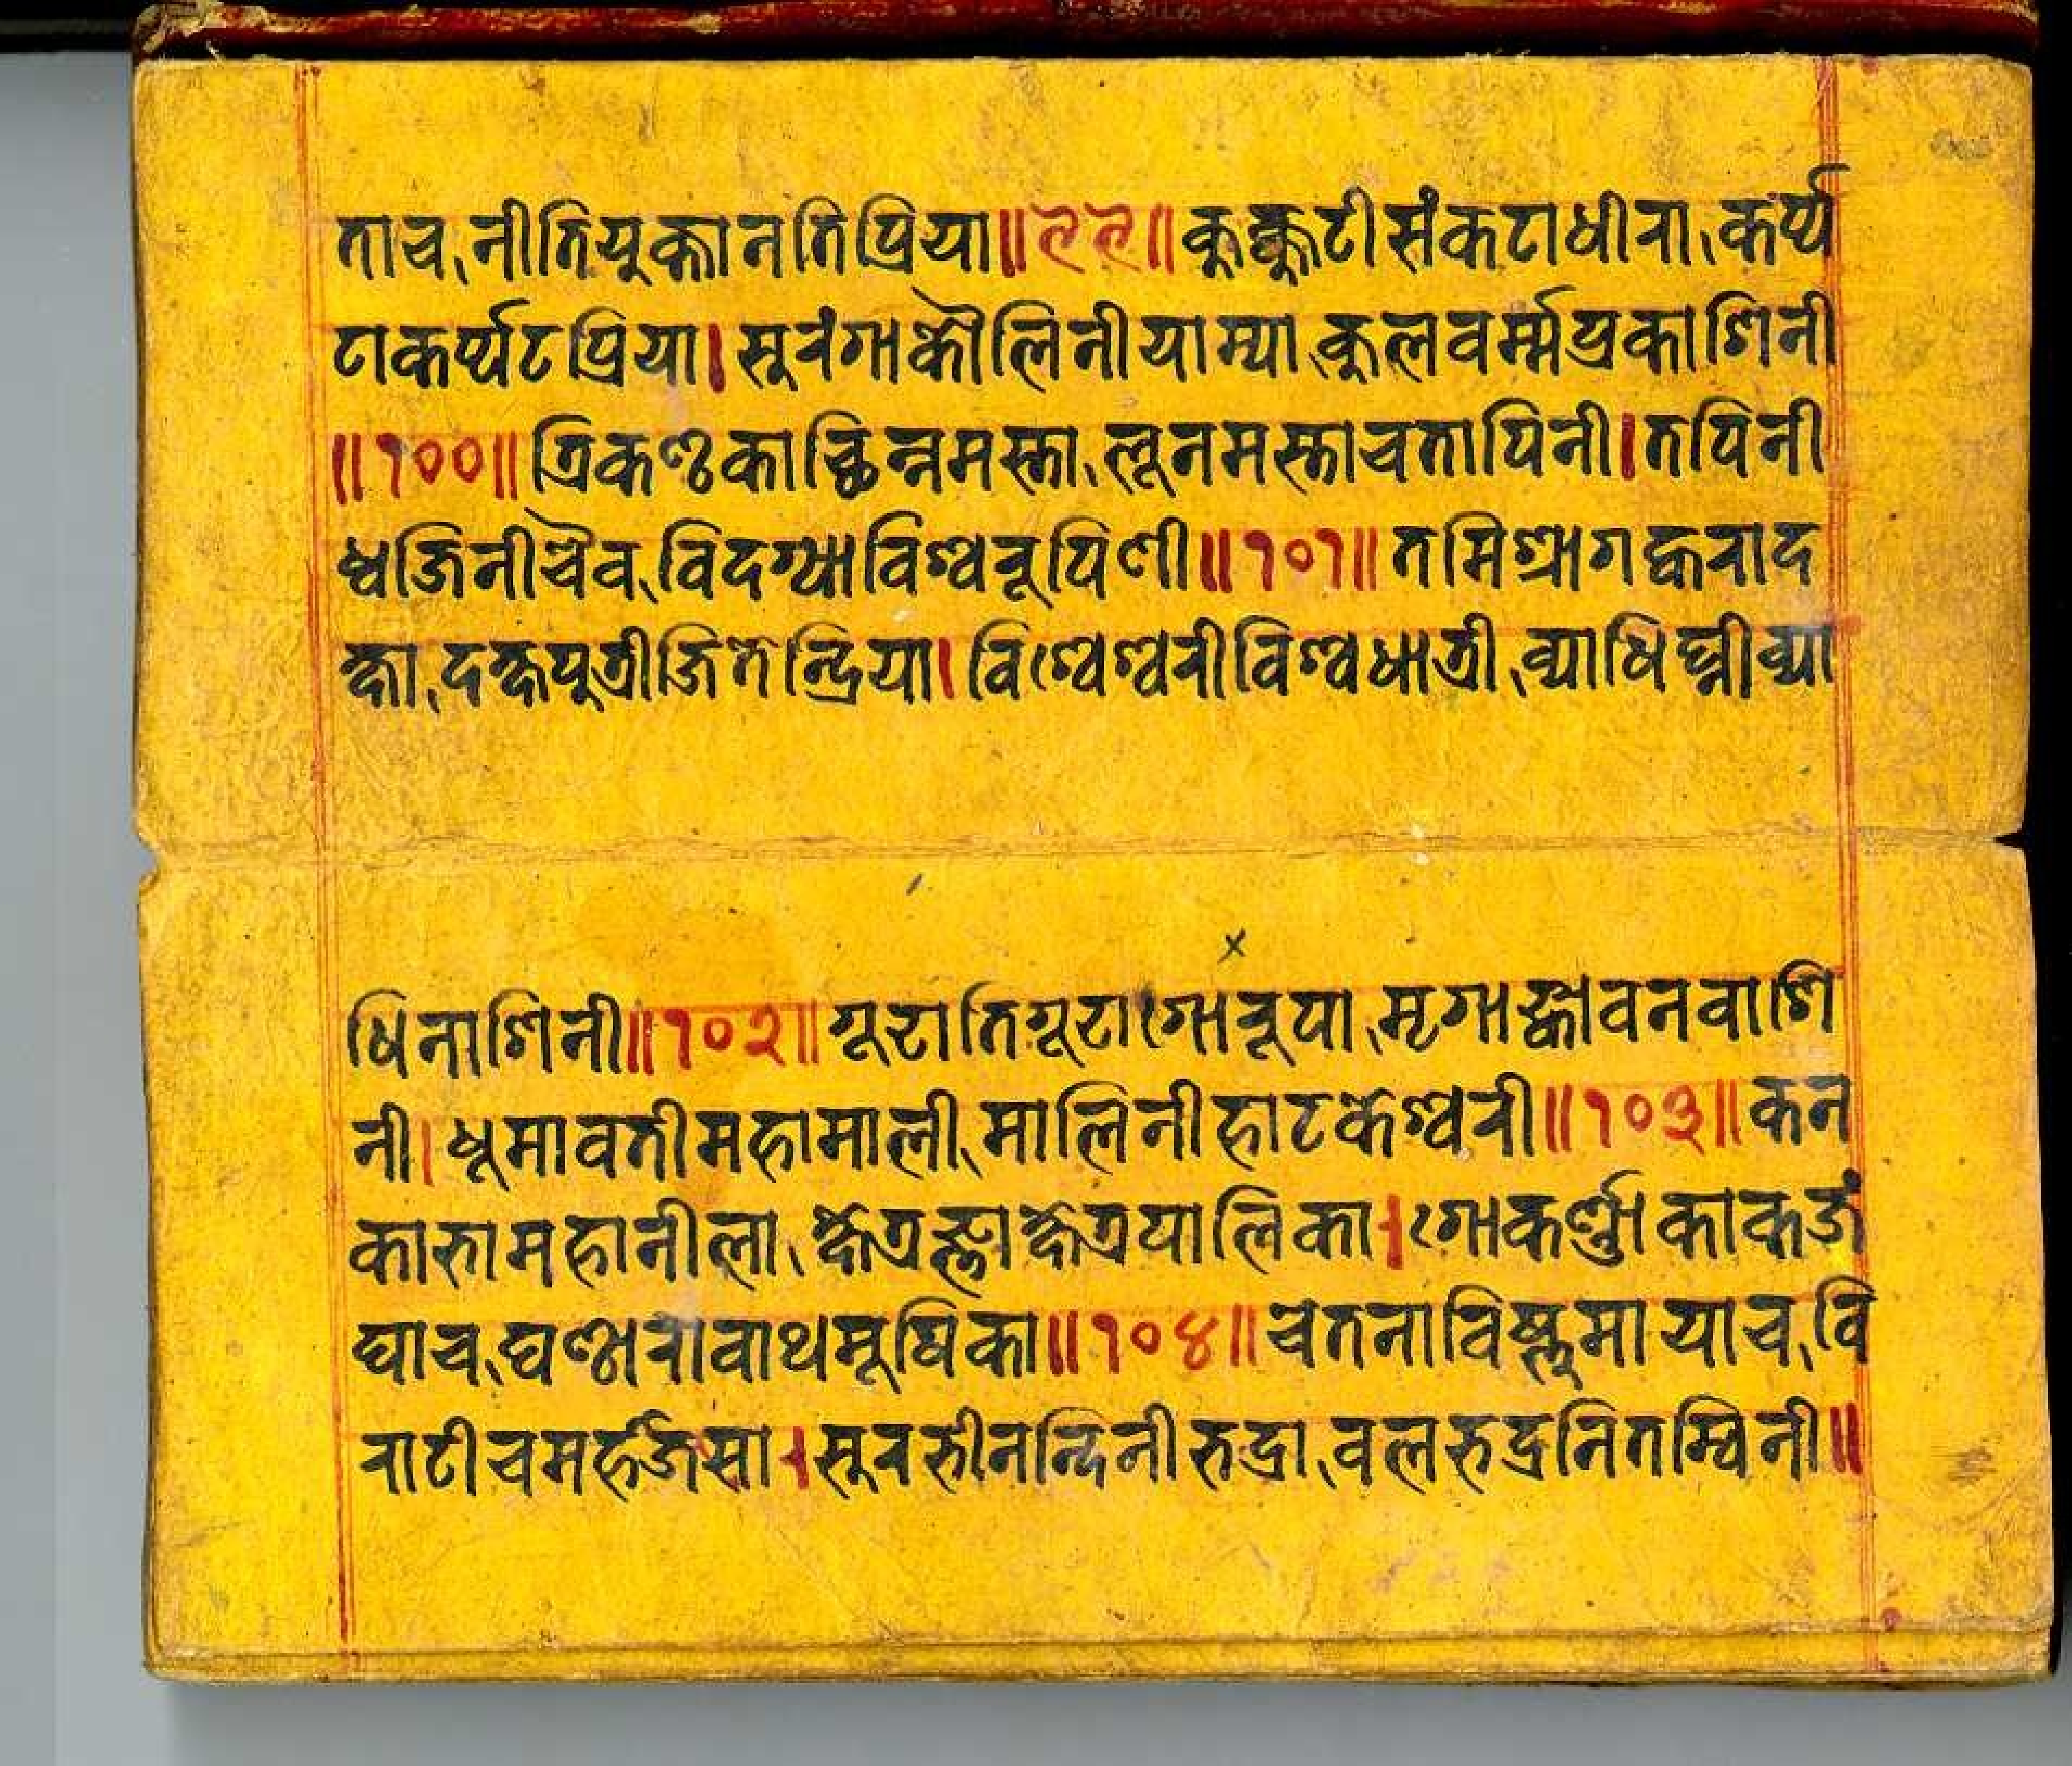 ताच, नीतियुक्तानतिप्रिया॥९९॥कुक्कुटीसंकटाधीरा, कर्प्प
टाकर्प्पटप्रिया।सुरंगाकौलिनीयाम्या, कुलवर्म्मप्रकाशिनी
॥१००॥त्रिकण्ठकाच्छिन्नमस्ता, लूनमस्ताचतापिनी।तपिनी
ध्वजिनीचैव, विदग्धाविश्वरूपिणी॥१०१॥तमिश्रागह्वराद
क्षा, दक्षपुत्रीजितेन्द्रिया।विश्वेश्वरीविश्वधात्री, व्याधिघ्नीव्या
धिनाशिनी॥१०२॥गूढातिगूढागोरूपा, मृगाङ्कावनवाशि
नी।धूमावतीमहामाली, मालिनीहाटकेश्वरी॥१०३॥कन
काभामहानीला, क्षेत्रज्ञाक्षेत्रपालिका।गोकर्ण्णाकाकजं
घाच, घण्ठारावाथमूषिका॥१०४॥चेतनाविष्णुमायाच, वि
राटीच सा।सुरभीनन्दिनीभद्रा, वलभद्रनितम्विनी॥